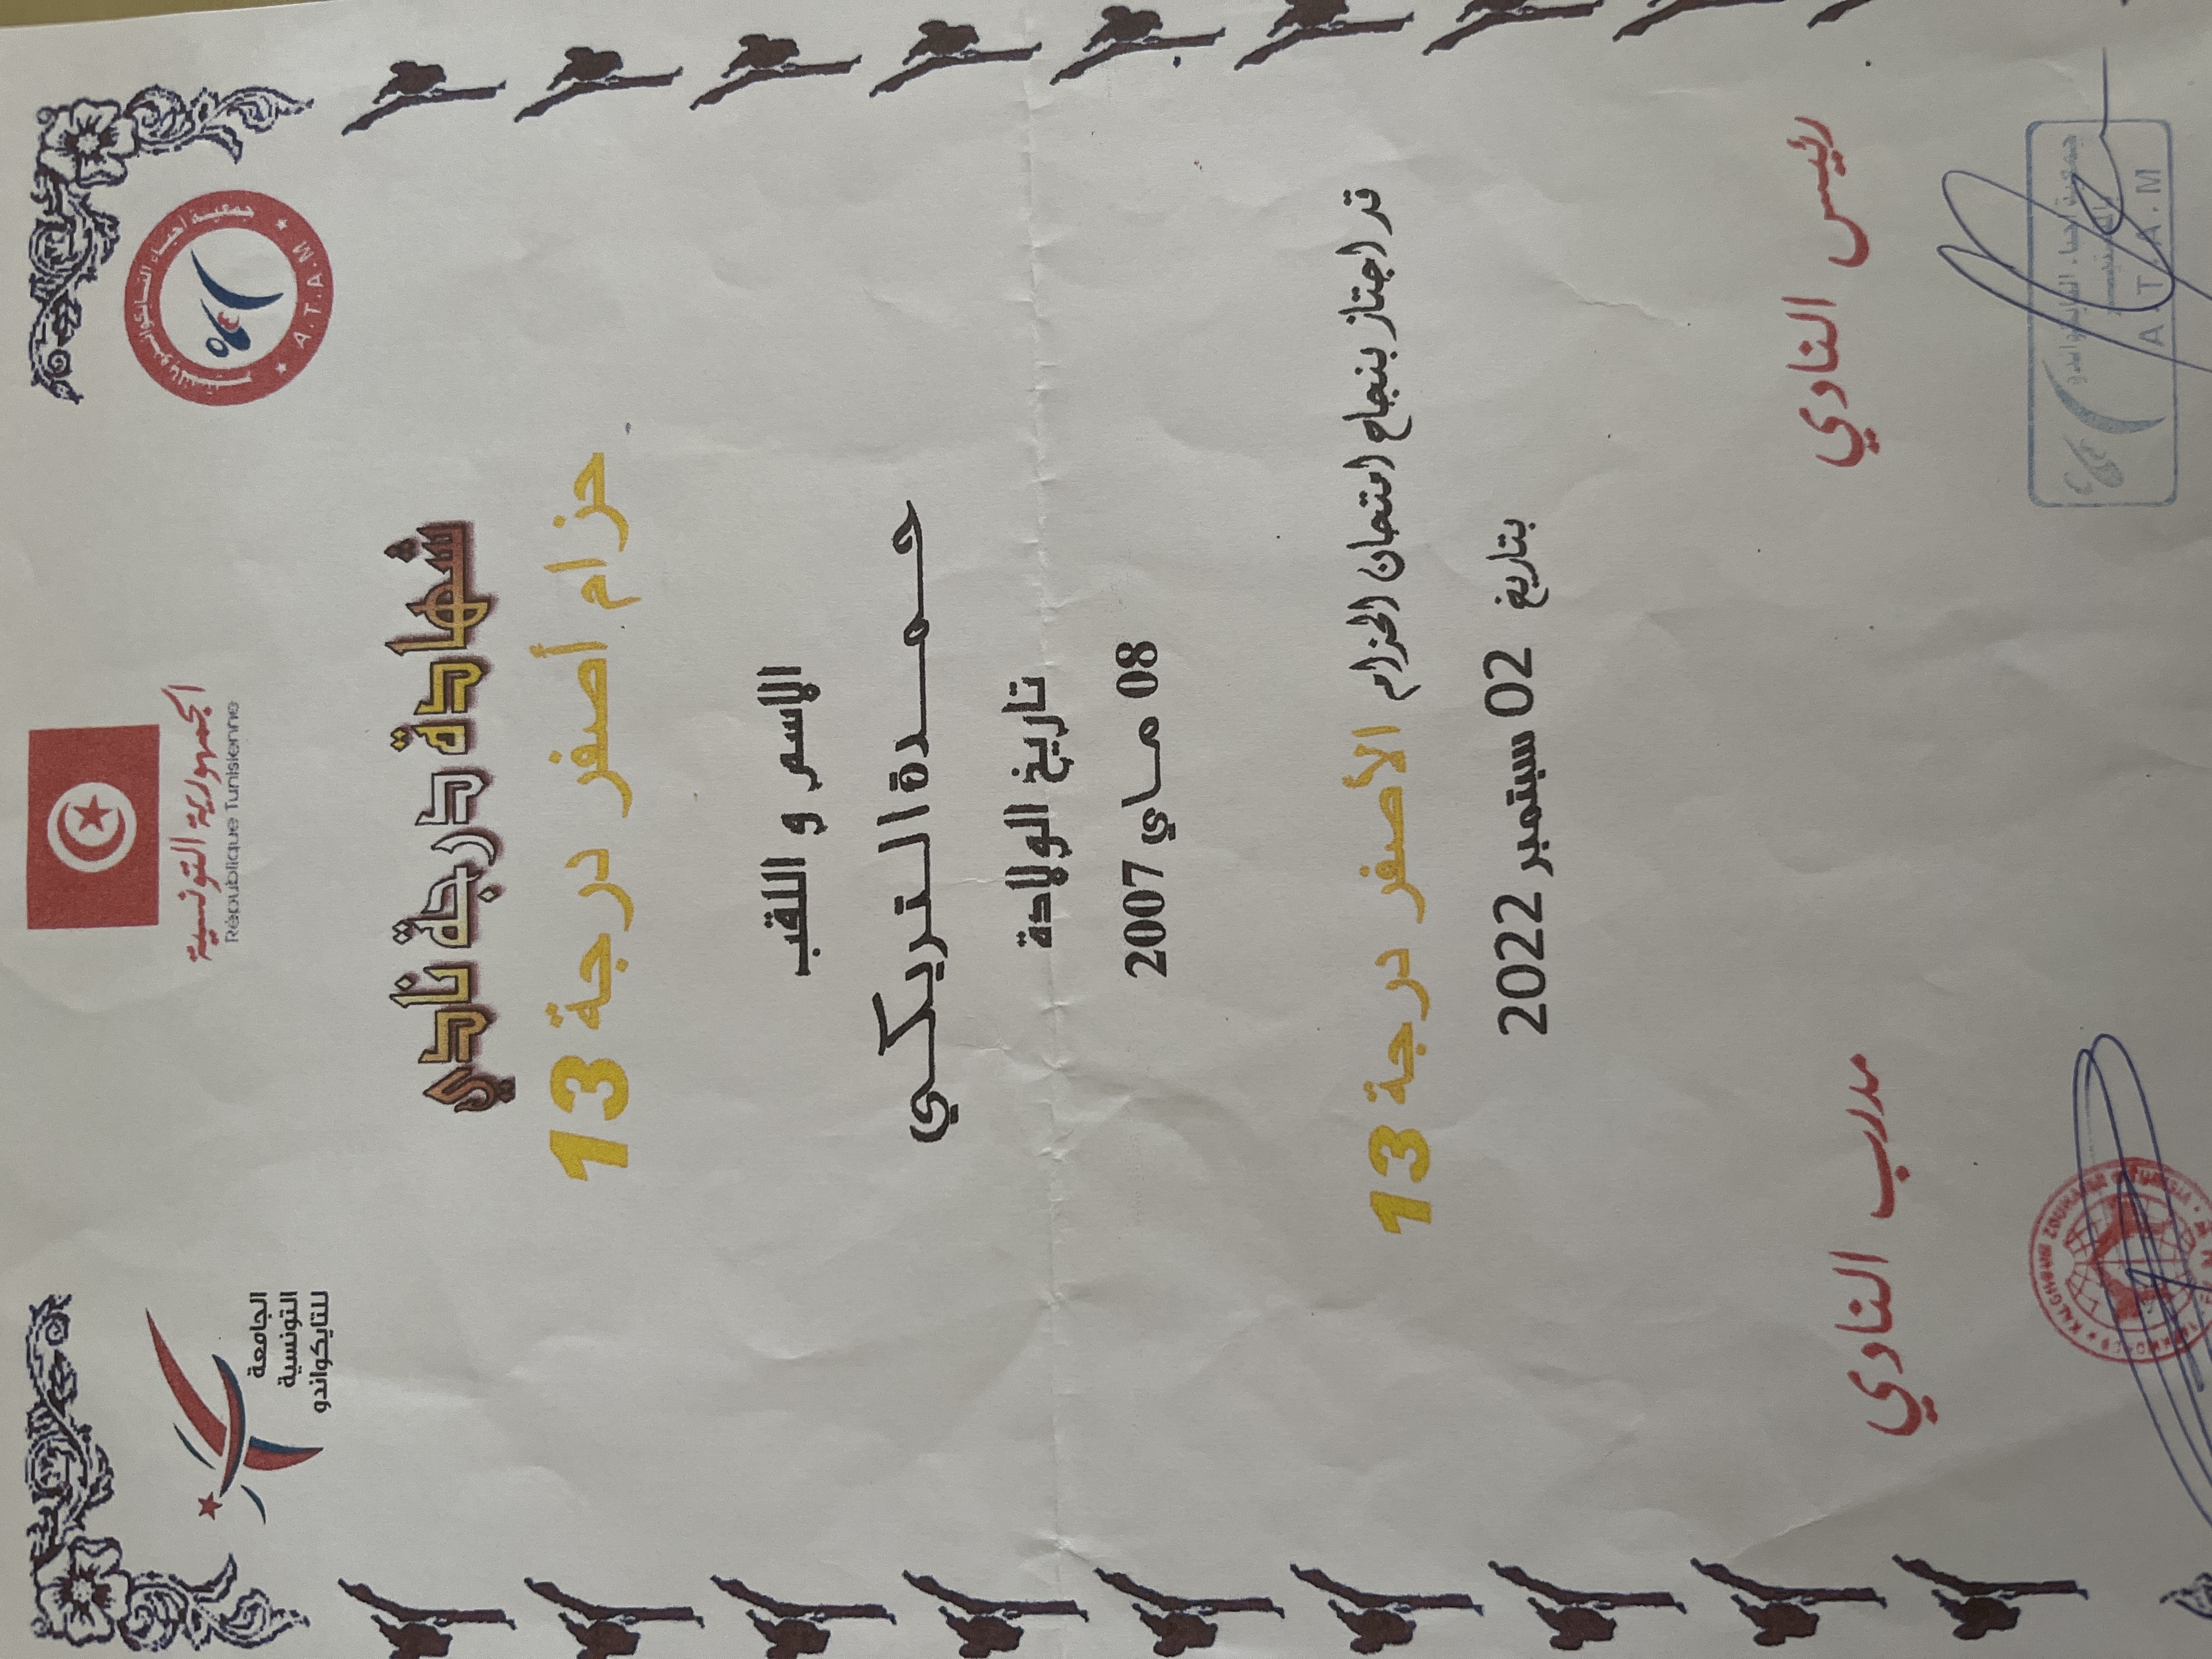 الجمهورية التونسية
République Tunisienne
جمعية أحباء التايكواندو
A.T.A.M
الجامعة
التونسية
للتايكواندو
شهادة درجة نادي
حزام أصفر درجة 13
الاسم و اللقب
حمدة التريكي
تاريخ الولادة
08 ماي 2007
قد اجتاز بنجاح امتحان الحزام الأصفر درجة 13
بتاريخ 02 سبتمبر 2022
رئيس النادي
مدرب النادي
جمعية أحباء التايكواندو
A.T.A.M